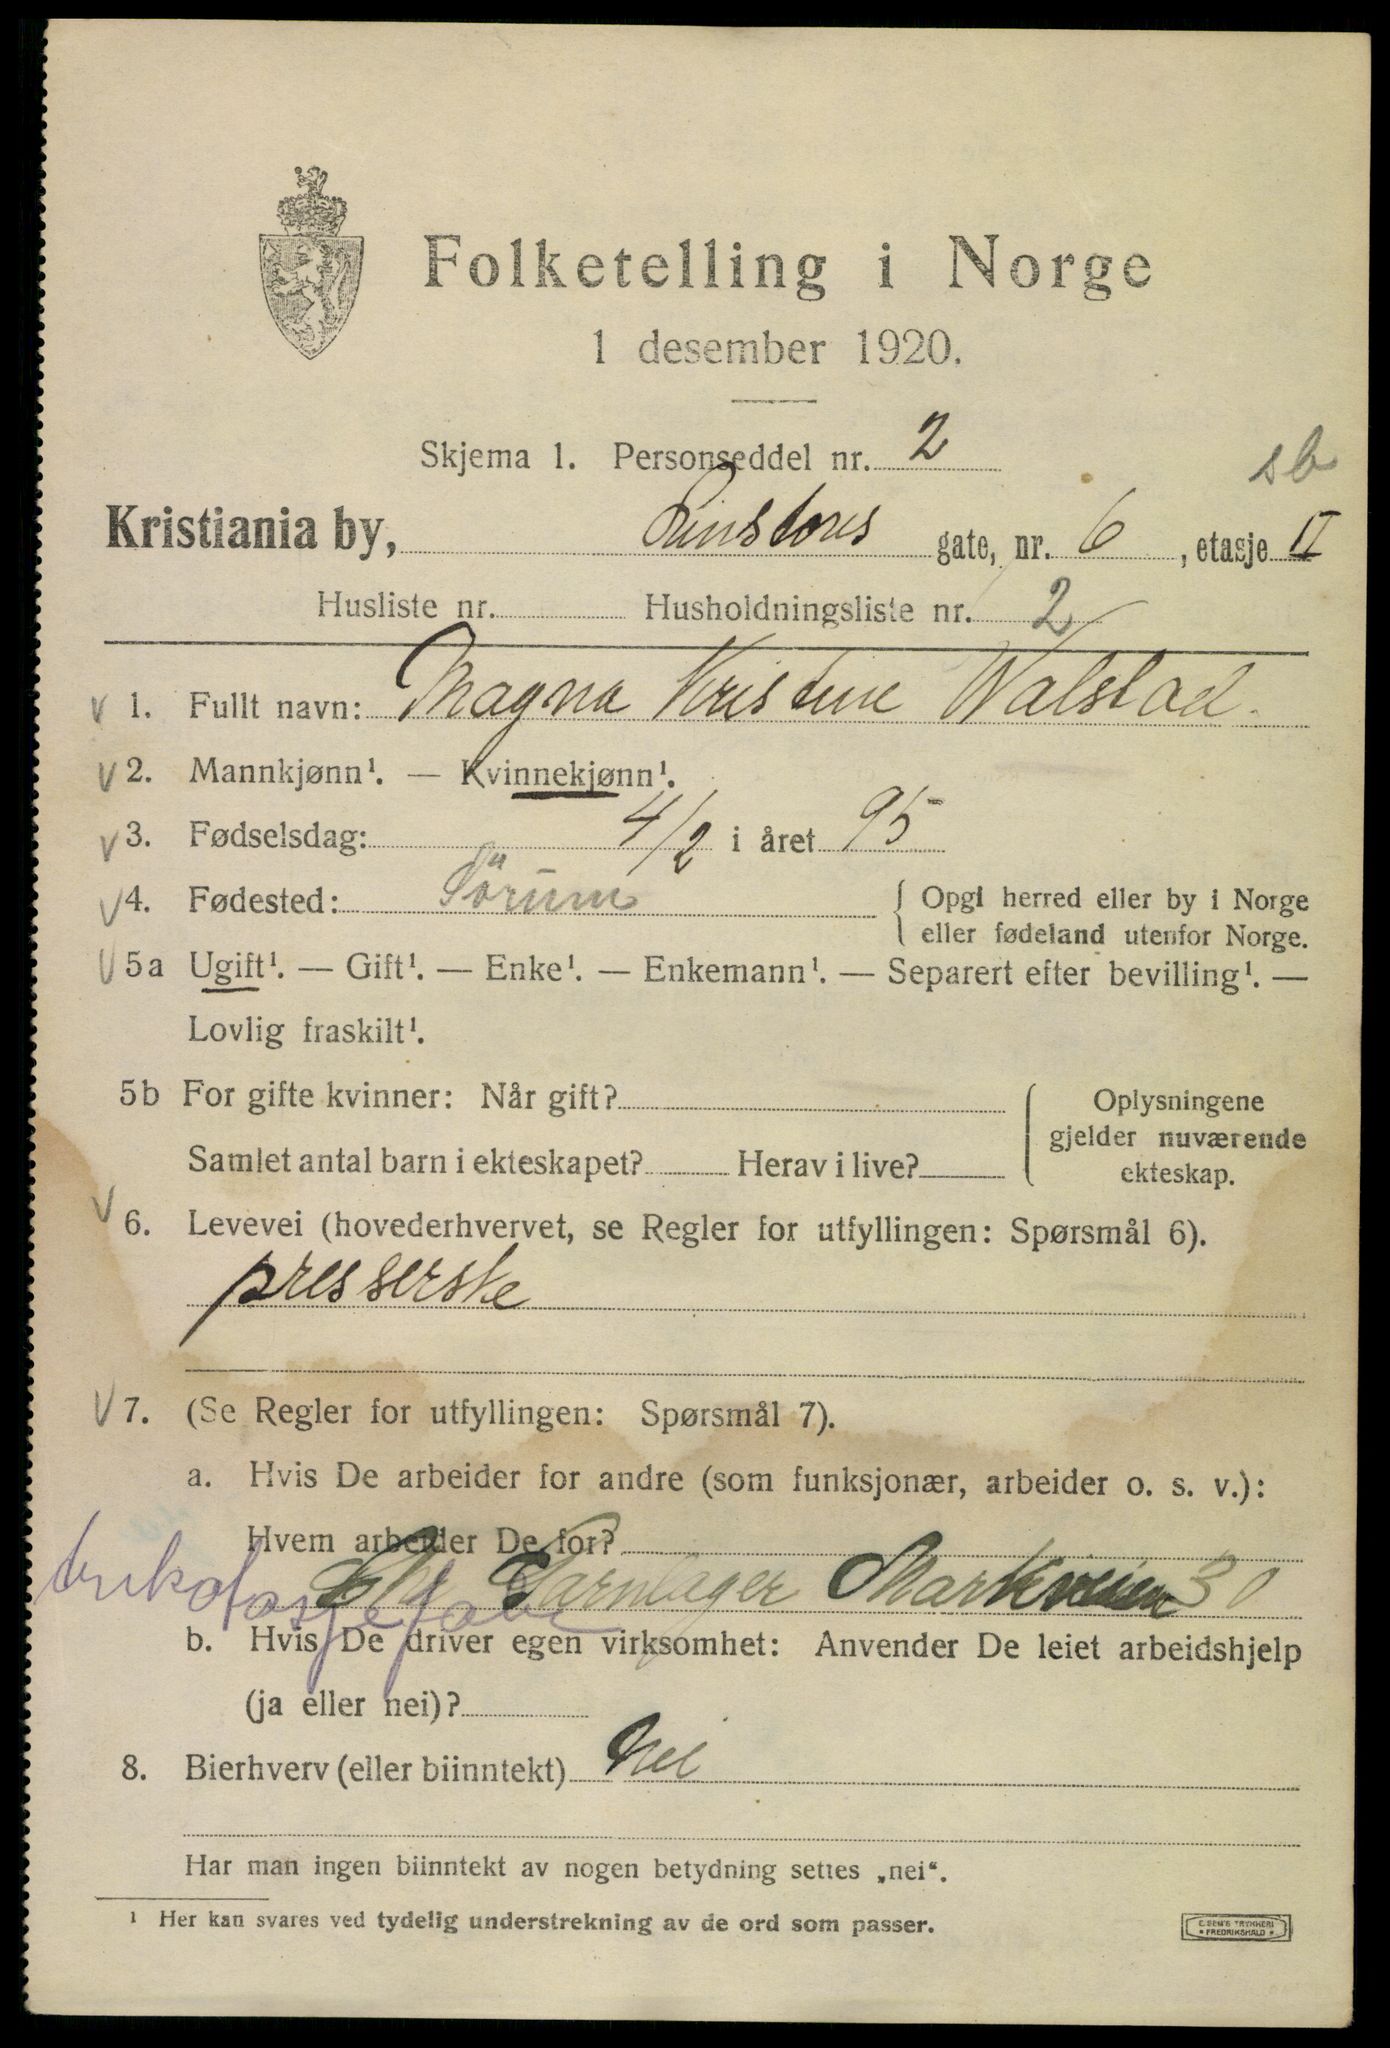 Folketelling i Norge
1 desember 1920.
Skjema 1. Personseddel nr. 2
sb
Kristiania by, Linstows gate, nr. 6, etasje II
Husliste nr. Husholdningsliste nr. 2
V 1. Fullt navn: Magna Kristine Walstad.
V 2. Mannkjønn¹. — Kvinnekjønn¹.
V 3. Fødselsdag: 4/2 i året 95
V 4. Fødested: Sörum { Opgi herred eller by i Norge
eller fødeland utenfor Norge.
V 5a Ugift¹. — Gift¹. — Enke¹. — Enkemann¹. — Separert efter bevilling¹. —
Lovlig fraskilt¹.
5b For gifte kvinner: Når gift? { Oplysningene
gjelder nuværende
Samlet antal barn i ekteskapet? Herav i live? ekteskap.
V 6. Levevei (hovederhvervet, se Regler for utfyllingen: Spørsmål 6).
presserske
V 7. (Se Regler for utfyllingen: Spørsmål 7).
a. Hvis De arbeider for andre (som funksjonær, arbeider o. s. v.):
Hvem arbeider De for?
Garnlager Markveien 30
trikotasjefabr
b. Hvis De driver egen virksomhet: Anvender De leiet arbeidshjelp
(ja eller nei)?
8. Bierhverv (eller biinntekt) Nei
Har man ingen biinntekt av nogen betydning settes „nei“.
¹ Her kan svares ved tydelig understrekning av de ord som passer.
E. SEM'S TRYKKERI
* FREDRIKSHALD *